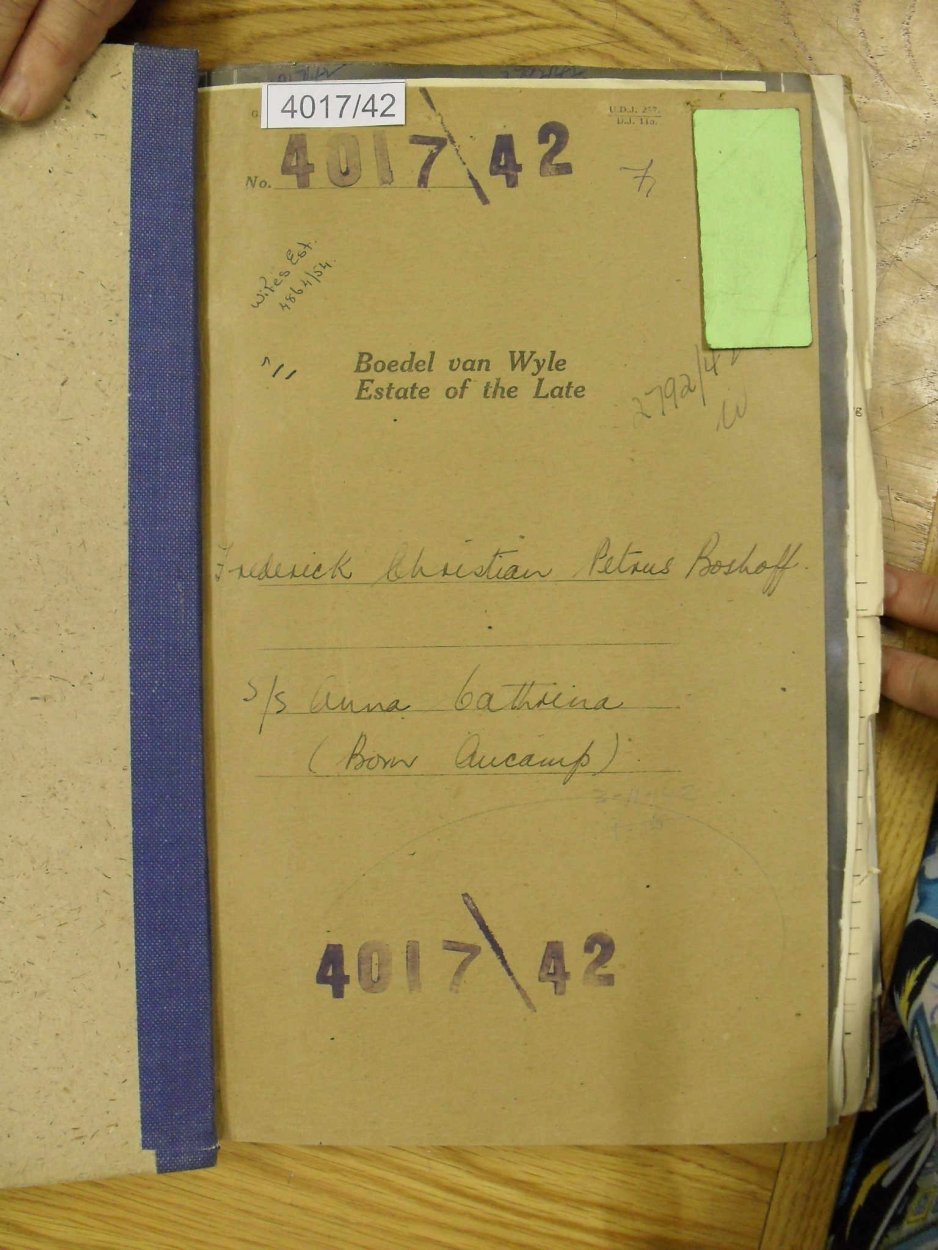 4017/42
U.D.J. 257.
D.J. 115.
No. 4017\42
Wifes Est.
4864/54.
Boedel van Wyle
Estate of the Late
2792/42
W
Frederick Christian Petrus Boshoff.
s/s Anna Cathrina
(Born Aucamp)
4017\42